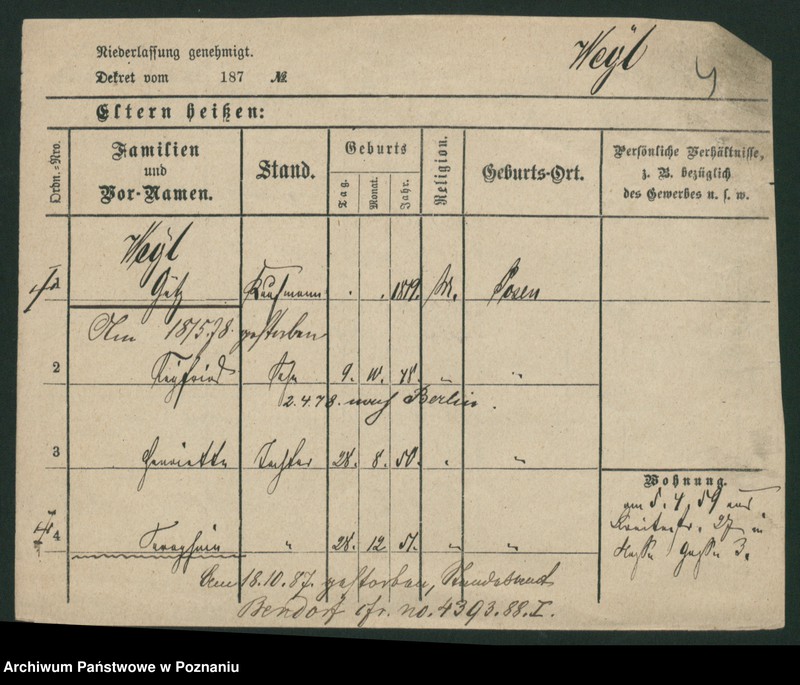 Niederlassung genehmigt.
Dekret vom 187 №
Weÿl
4
Eltern heißen:
Ordn.-Nro.
Familien
und
Vor-Namen.
Stand.
Geburts
Tag.
Monat.
Jahr.
Religion.
Geburts-Ort.
Persönliche Verhältnisse,
z. B. bezüglich
des Gewerbes u. s. w.
Weÿl
1 Götz Kaufmann . . 1819. M. Posen
Am 18/5.78. gestorben
2 Sigfried Sohn 9. 10. 48. " "
2.4.78. nach Berlin.
3 Henriette Tochter 28. 8. 50. " "
4 " 28. 12 51. " "
Am 18.10.87. gestorben, Standesamt
Bendorf cfr. no. 4393.88.I.
Wohnung.
am 5. 4. 59 aus
27 in
3.
Archiwum Państwowe w Poznaniu